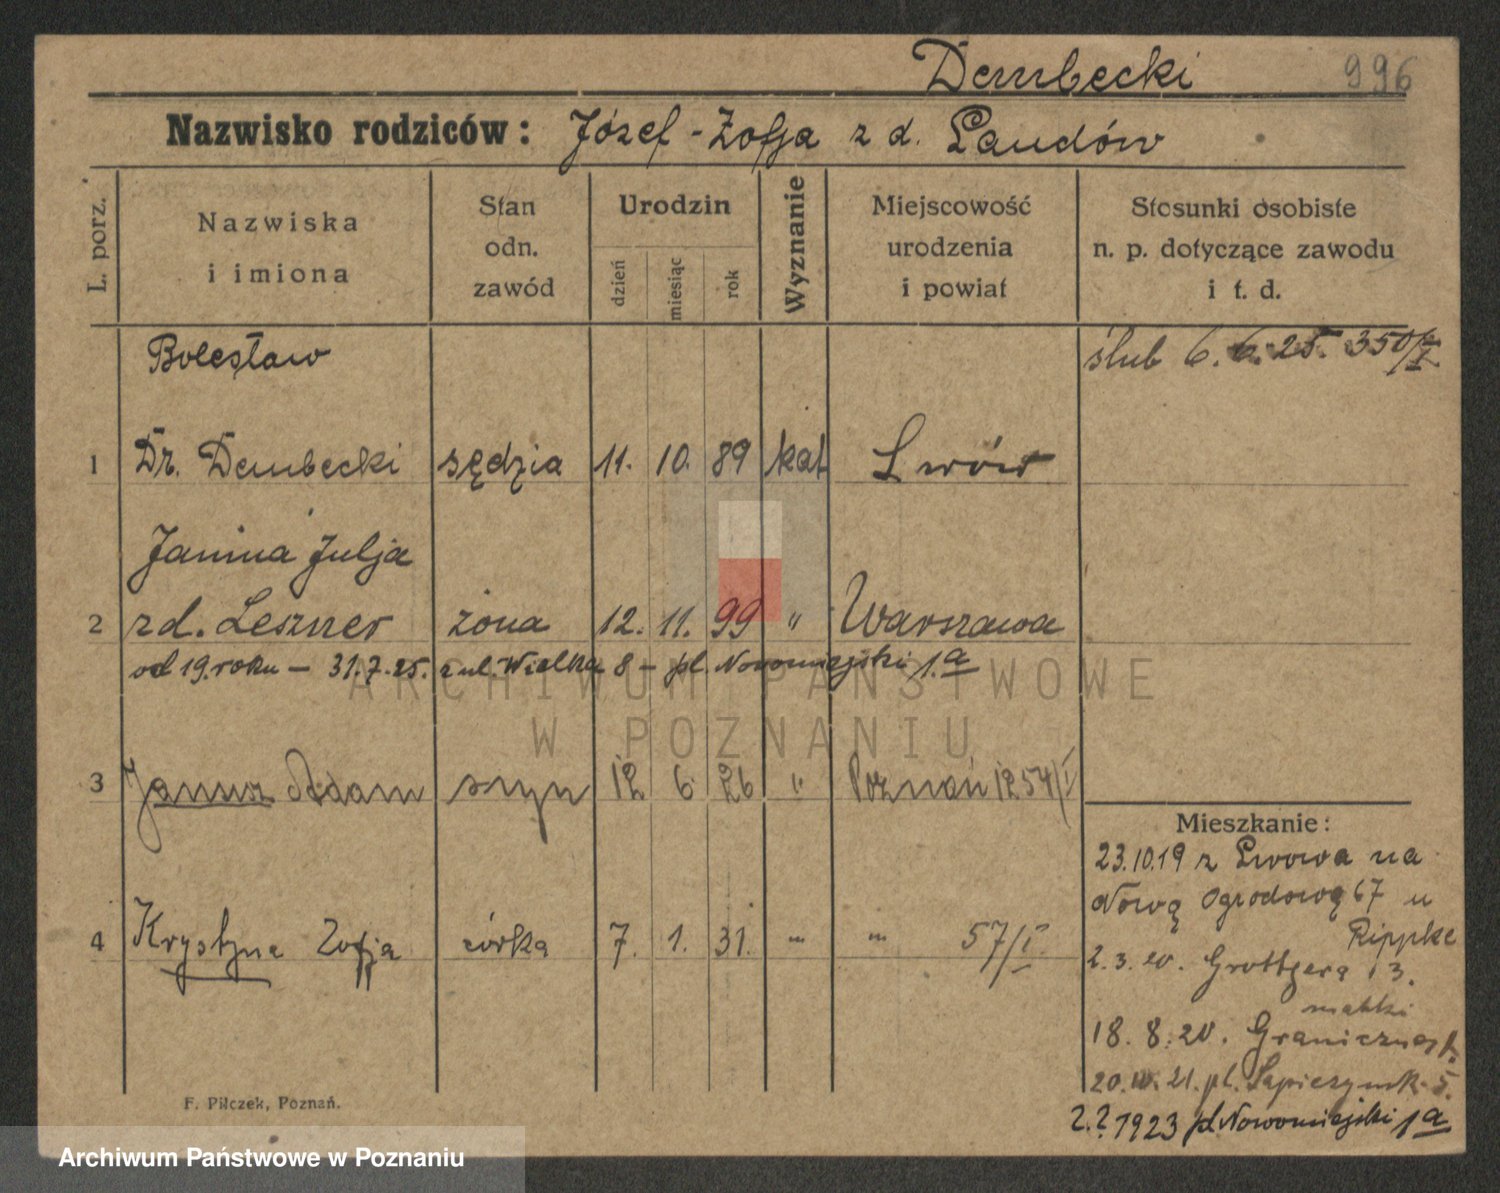 Dembecki 996
Nazwisko rodziców: Józef - Zofja z d. Landów
L. porz.
Nazwiska
i imiona
Stan
odn.
zawód
Urodzin
dzień
miesiąc
rok
Wyznanie
Miejscowość
urodzenia
i powiat
Stosunki osobiste
n. p. dotyczące zawodu
i t. d.
Bolesław
ślub 6. 6. 25. 350/I
1 Dr. Dembecki sędzia 11. 10. 89 kat Lwów
Janina Julja
2 zd. Leszner żona 12. 11. 99 " Warszawa
od 19. roku - 31.7.25. z ul. Wielka 8 - pl. Nowomiejski 1.a
3 Janusz Adam syn 12 6 26 " Poznań 1254/I
4 Krystyna Zofja córka 7. 1. 31. " " 57/I
Mieszkanie:
23.10.19 z Lwowa na
Nową Ogrodową 67 u
Rippke
2.3.20. Grottgera 13.
matki
18.8.20. Graniczna
20.10.21. pl. Sapieżyńsk. 5.
2.2.1923 pl. Nowomiejski 1a
F. Pilczek, Poznań.
ARCHIWUM PAŃSTWOWE
W POZNANIU
Archiwum Państwowe w Poznaniu